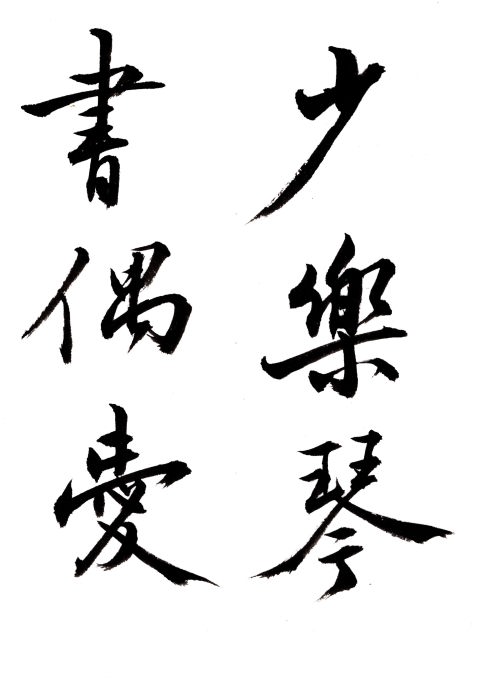 少樂琴
書偶愛